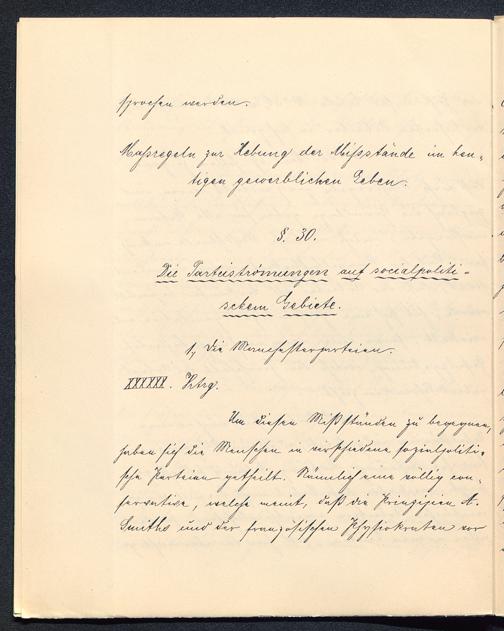 sprochen werden.
Maßregeln zur Hebung der Mißstände im heu-
tigen gewerblichen Leben.
§. 30.
Die Parteiströmungen auf socialpoliti-
schem Gebiete.
1, die Manchesterparteien.
XXXXXX. Vrtrg.
Um diesen Mißständen zu begegnen,
haben sich die Menschen in verschiedene sozialpoliti-
sche Parteien getheilt. Nämlich eine völlig con-
servative, welche meint, daß die Prinzipien A.
Smiths und der französischen Physiokraten vor